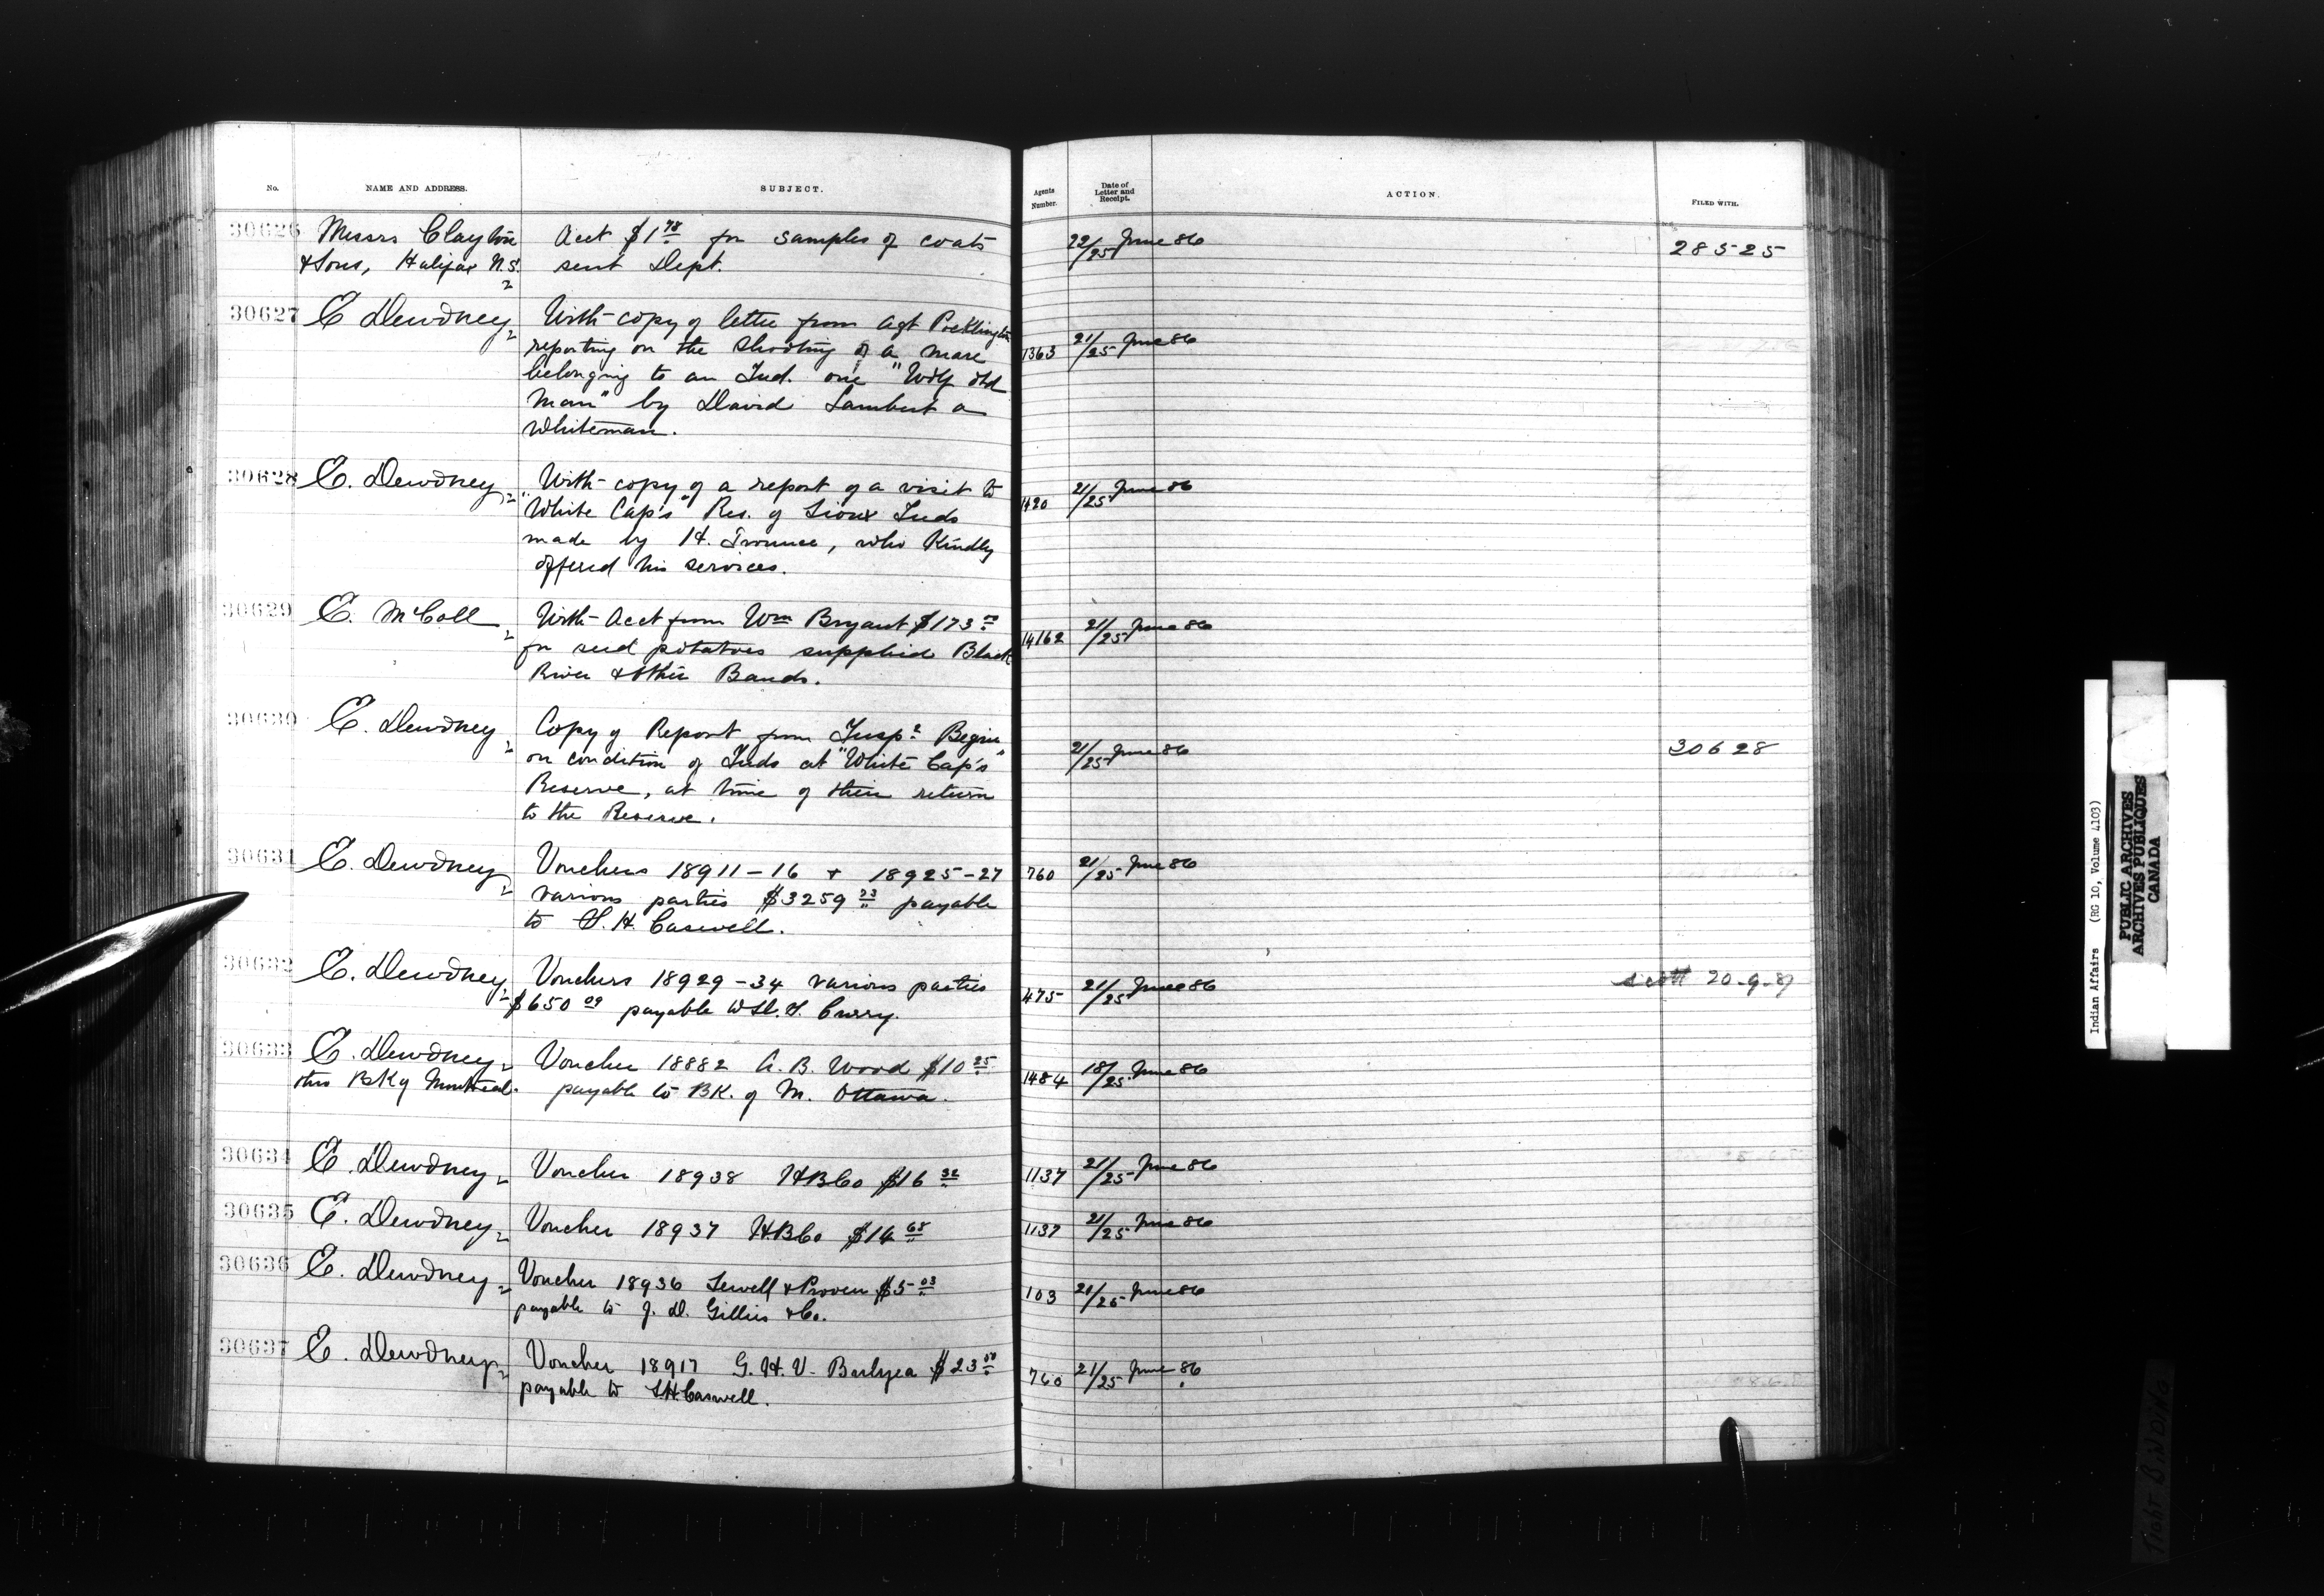 No. NAME AND ADDRESS. SUBJECT. Agents Number. Date of Letter and Receipt. ACTION. FILED WITH.
30626 Messrs Clayton Acct $1 78 for samples of coats 22/25 June 86 28525
& Sons, Halifax N.S. sent Dept.
30627 E Dewdney With copy of letter from Agt Pocklington 1363 21/25 June 86
reporting on the shooting of a mare
belonging to an Ind. one "Wolf old
Man" by David Lambert a
Whiteman.
30628 E. Dewdney With copy of a report of a visit to 1420 21/25 June 86
"White Cap's" Res. of Sioux Inds
made by H. Trounce, who Kindly
offered his services.
30629 E. McColl With Acct from Wm Bryant $173 14162 21/25 June 86
for seed potatoes supplied Black
River & other Bands.
30630 E. Dewdney Copy of Report from Inspr Begin 21/25 June 86 30628
on condition of Inds at "White Cap's"
Reserve, at time of their return
to the Reserve.
30631 E. Dewdney Vouchers 18911-16 & 18925-27 760 21/25 June 86
various parties $3259 23 payable
to S. H. Caswell.
30632 E. Dewdney Vouchers 18929-34 various parties 475 21/25 June 86 20-9-87
$650 09 payable to Curry.
30633 E. Dewdney Voucher 18882 A. B. Wood $10 25 1484 18/25 June 86
thro BK of Montreal. payable to BK. of M. Ottawa.
30634 E. Dewdney Voucher 18938 HBCo $16 32 1137 21/25 June 86
30635 E. Dewdney Voucher 18937 HBCo $14 68 1137 21/25 June 86
30636 E. Dewdney Voucher 18936 Sewell & Proven $5 03 103 21/25 June 86
payable to J. D. Gillies & Co.
30637 E. Dewdney Voucher 18917 G. H. V. Bulyea $23 00 760 21/25 June 86
payable to S.H. Caswell.
Indian Affairs (RG 10, Volume 4103)
PUBLIC ARCHIVES
ARCHIVES PUBLIQUES
CANADA
TIGHT BINDING